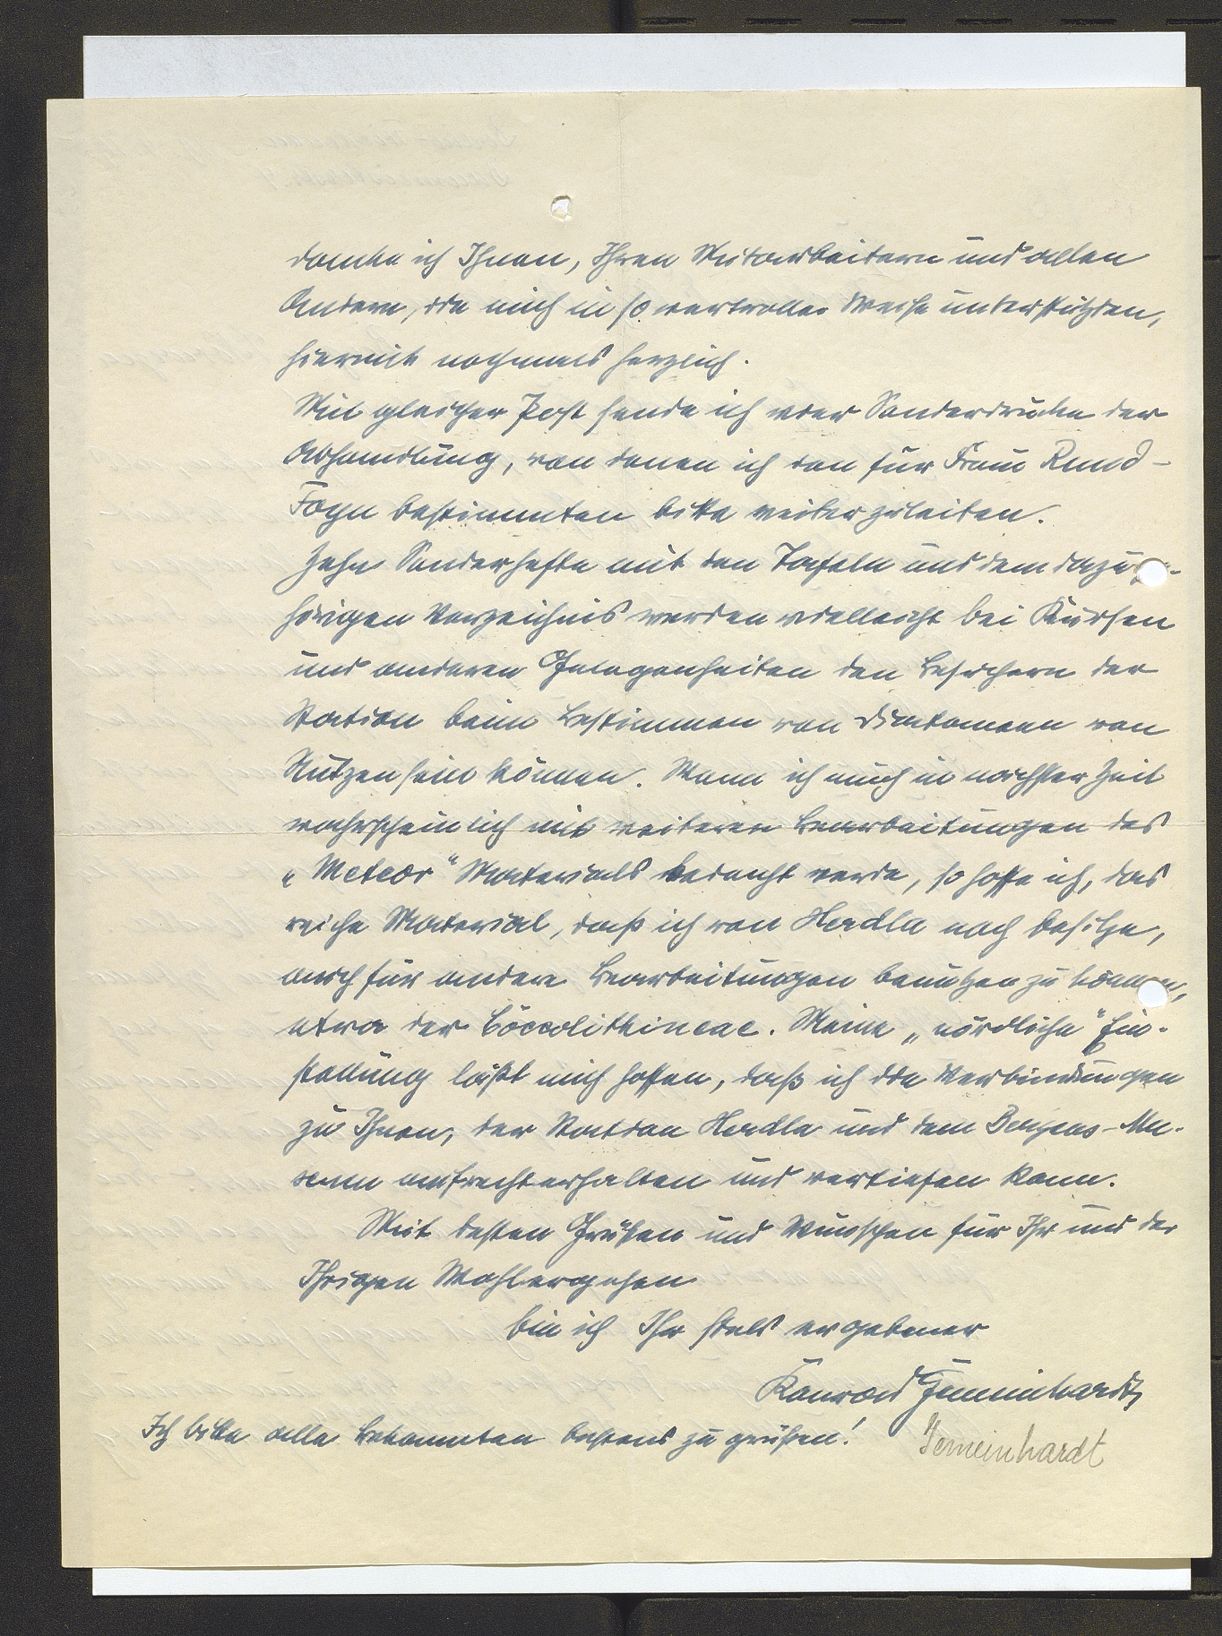 danke ich Ihnen, Ihren Mitarbeitern und allen
Andern, die mich in so wertvoller Weise unterstützten,
hiermit nochmals herzlich.
Mit gleicher Post sende ich vier Sonderdrucke der
Abhandlung, von denen ich den für Frau Rund-
Fogn bestimmten bitte weiterzuleiten.
Zehn Sonderhefte mit den Tafeln und dem dazuge-
hörigen Verzeichnis werden vielleicht bei Kursen
und anderen Gelegenheiten den Besuchern der
Station beim Bestimmen von Diatomeen von
Nutzen sein können. Wenn ich auch in nächster Zeit
wahrscheinlich mit weiteren Bearbeitungen des
„Meteor" Materials bedacht werde, so hoffe ich, das
reiche Material, daß ich von Herdla noch besitze,
auch für andere Bearbeitungen benutzen zu können,
etwa der Coccolithineae. Meine „nördliche" Ein-
stellung läßt mich hoffen, daß ich die Verbindungen
zu Ihnen, der Station Herdla und dem Bergens-Mu-
seum aufrechterhalten und vertiefen kann.
Mit besten Grüßen und Wünschen für Ihr und der
Ihrigen Wohlergehen
bin ich Ihr stets ergebener
Konrad Gemeinhardt,
Ich bitte alle Bekannten bestens zu grüßen! Gemeinhardt